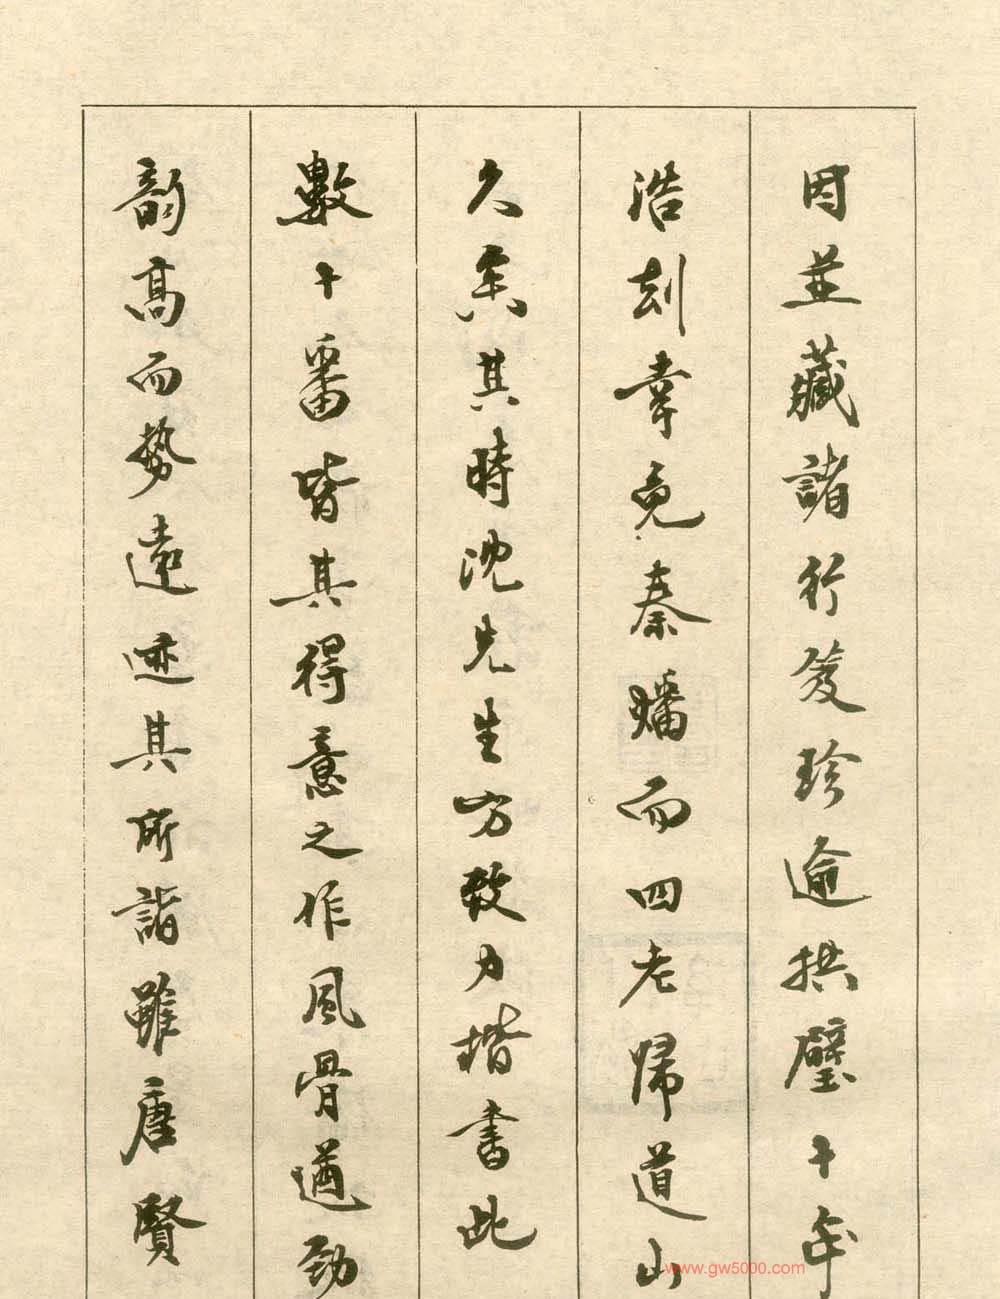 因並藏諸行笈珍逾拱璧十年
浩刼幸免秦燔而四老歸道山
久矣其時沈先生方致力楷書此
數十番皆其得意之作風骨遒勁
韵高而勢遠迹其所詣雖唐賢
www.gw5000.com